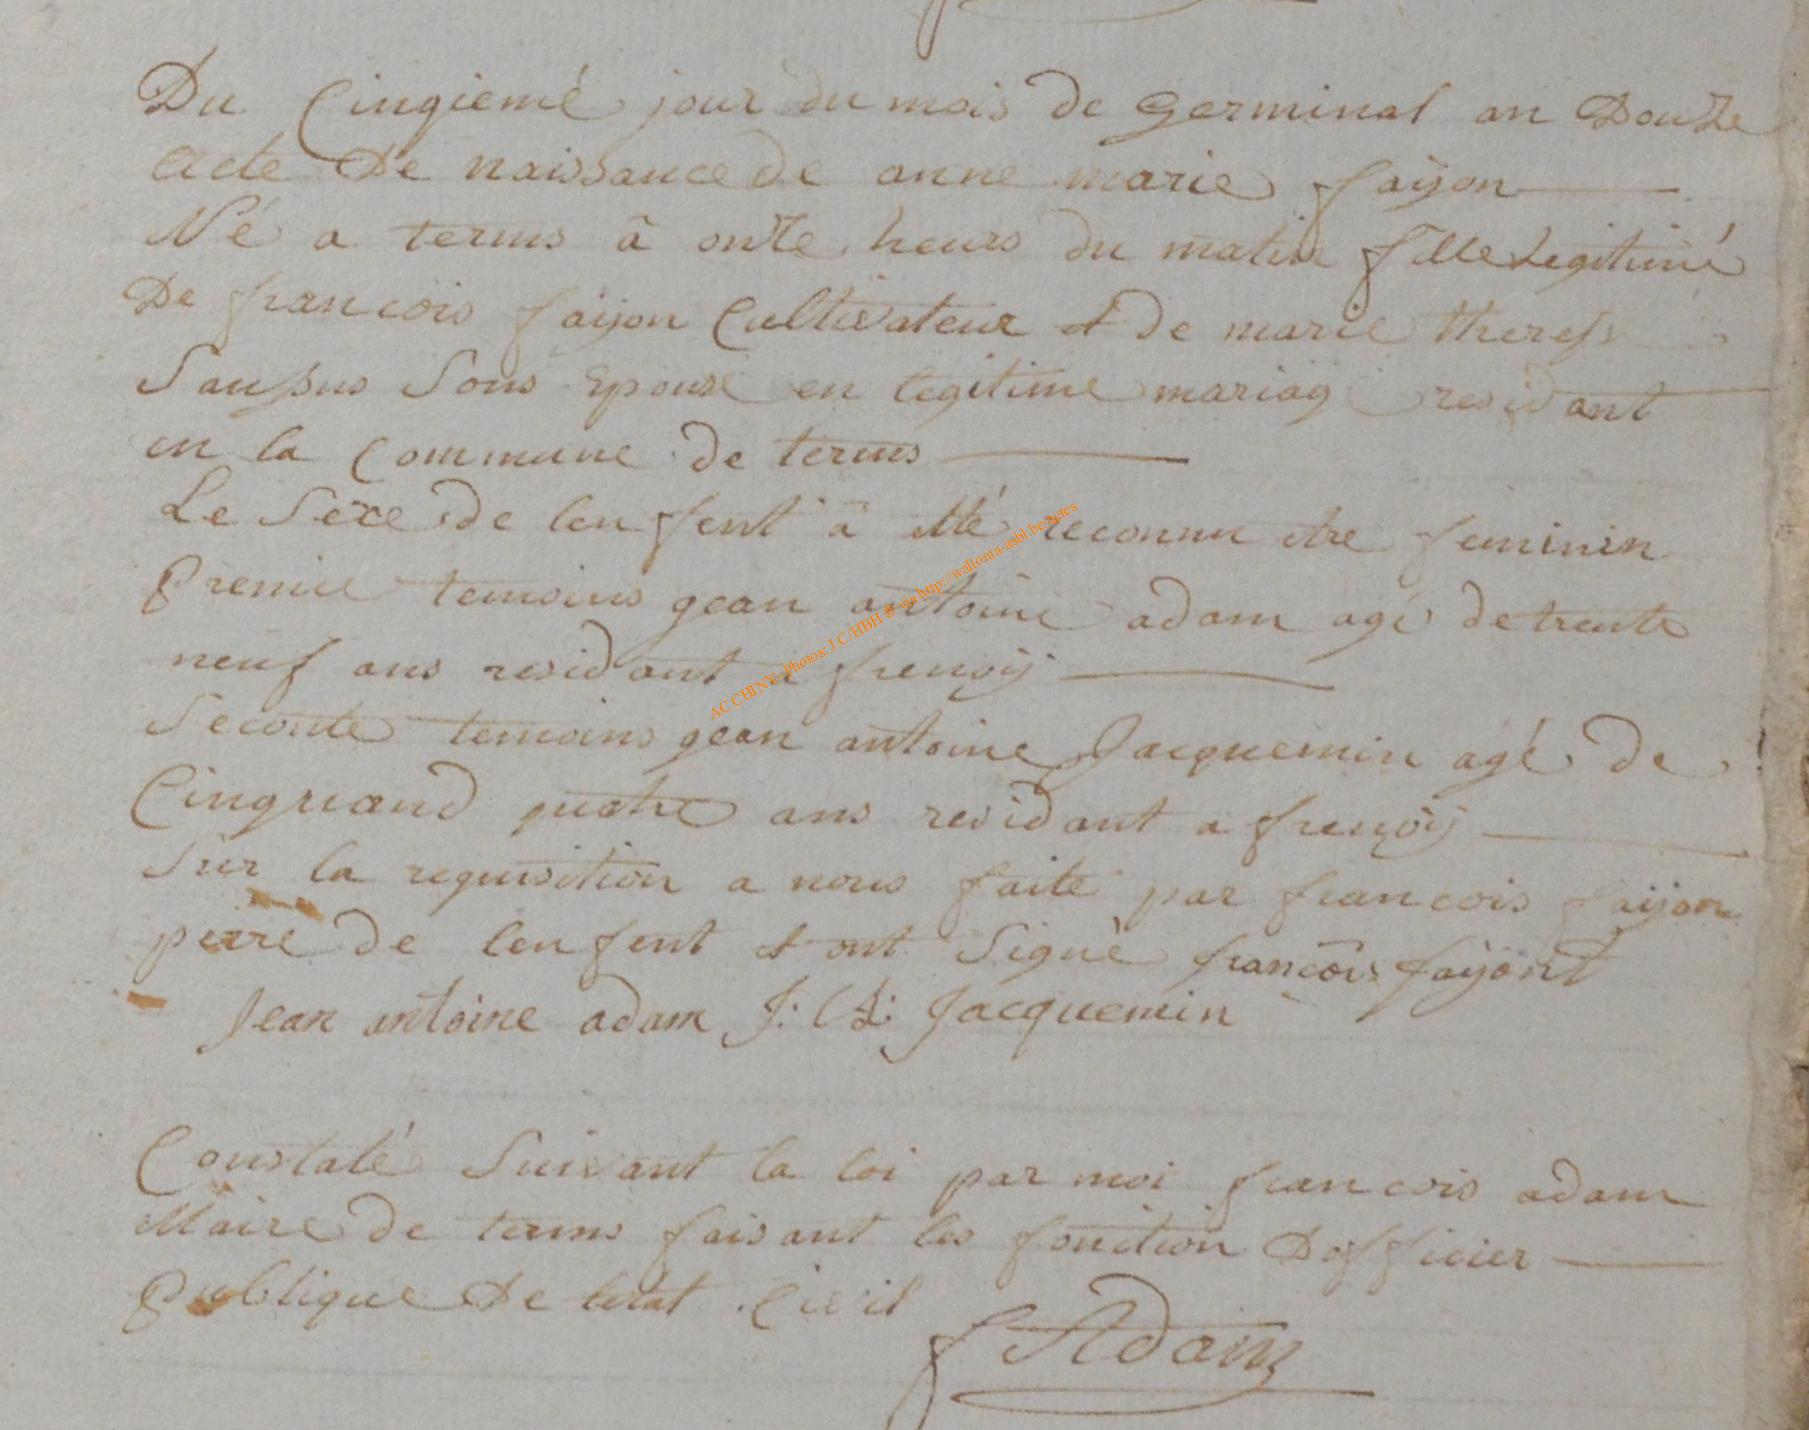 Du Cinqiemé jour du mois de Germinal an Douze
acte De naissance de anne marie faÿon
Né a terms à onze heurs du matin fille Legitimé
De francois faÿon Cultivateur et de marie theress
Saussus Sous Epouse en legitime mariag residant
en la Commune de terms
Le Sexe de lenfent à etté reconnu etre feminin
Premie temoins gean antoine adam agé de trente
neuf ans residant a frenoÿ
Seconte temoins gean antoine Jacquemin agé de
Cinquand quatre ans residant a frenoÿ
Sur la requisition a nous faite par francois faÿon
perre de lenfent et ont Signé françois faÿont
Jean antoine adam J: A: Jacquemin
Constaté Suivant la loi par moi francois adam
Maire de terms faisant les fonction Dofficier
Publique De letat Civil
f Adam
AC CHINY - Photos: J.C/HBH © via http://wallonia-asbl.be/actes